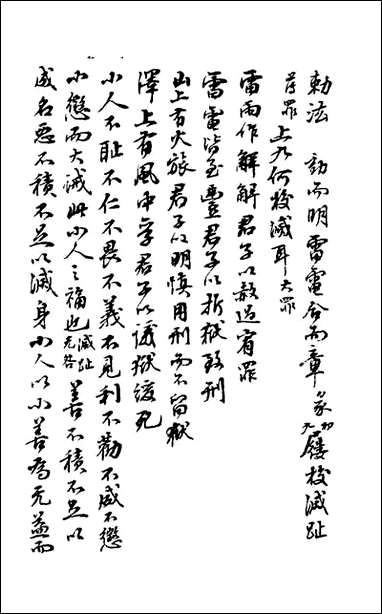 勅法 動而明 雷電合而章 象 初九 屨校滅趾
薄罪 上九何校滅耳 大罪
雷雨作解解君子以赦過宥罪
雷電皆至豐君子以折獄致刑
山上有火旅君子以明慎用刑而不留獄
澤上有風中孚君子以議獄緩死
小人不恥不仁不畏不義不見利不勸不威不懲
小懲而大誡此小人之福也 滅趾无咎 善不積不足以
成名惡不積不足以滅身小人以小善為无益而